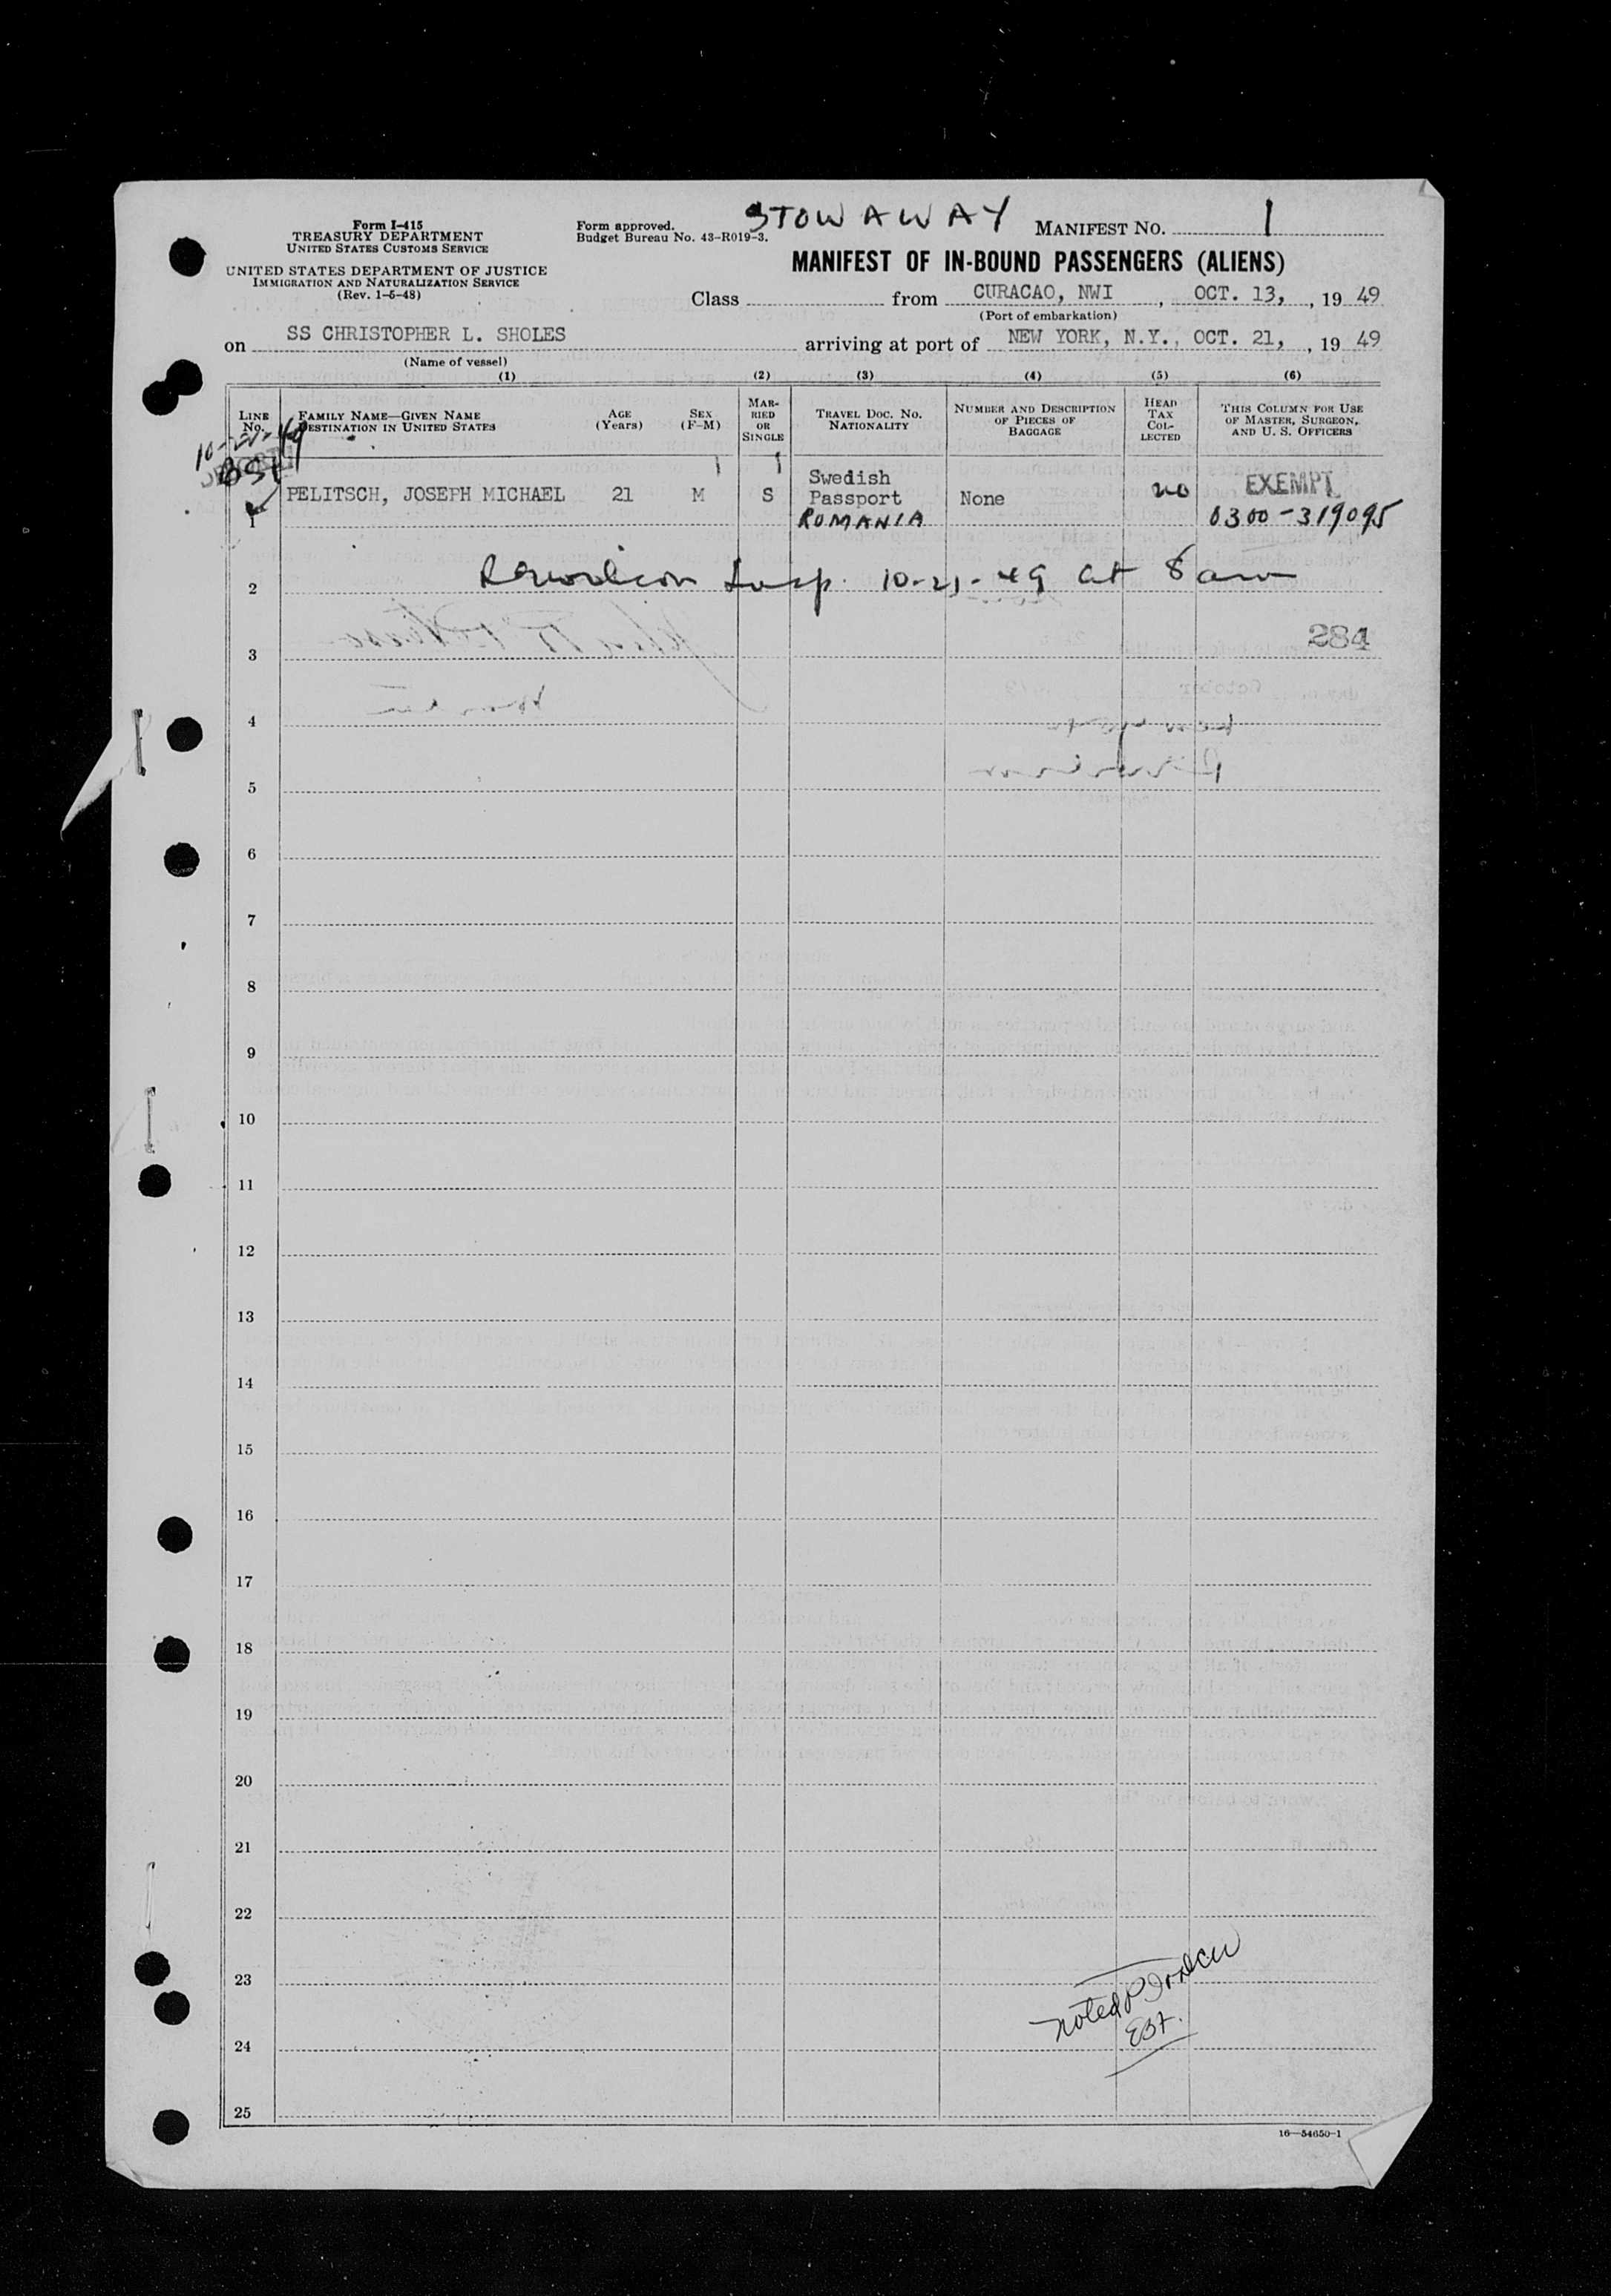 Form I-415
TREASURY DEPARTMENT
UNITED STATES CUSTOMS SERVICE
UNITED STATES DEPARTMENT OF JUSTICE
IMMIGRATION AND NATURALIZATION SERVICE
(Rev. 1-5-48)
Form approved.
Budget Bureau No. 43-R019-3.
STOWAWAY
MANIFEST No. 1
MANIFEST OF IN-BOUND PASSENGERS (ALIENS)
Class from CURACAO, NWI, OCT. 13, , 19 49
(Port of embarkation)
on SS CHRISTOPHER L. SHOLES arriving at port of NEW YORK, N.Y., OCT. 21, , 19 49
(Name of vessel)
(1) (2) (3) (4) (5) (6)
LINE No.
FAMILY NAME—GIVEN NAME
DESTINATION IN UNITED STATES
AGE (Years)
SEX (F-M)
MARRIED OR SINGLE
TRAVEL DOC. NO. NATIONALITY
NUMBER AND DESCRIPTION OF PIECES OF BAGGAGE
HEAD TAX COLLECTED
THIS COLUMN FOR USE OF MASTER, SURGEON, AND U. S. OFFICERS
BSI
1 PELITSCH, JOSEPH MICHAEL 21 M S Swedish Passport None no EXEMPT
ROMANIA 0300-319095
2 Insp. 10-21-49 at 8 am
3 284
4
5
6
7
8
9
10
11
12
13
14
15
16
17
18
19
20
21
22
23
noted
24
25
16—54650-1